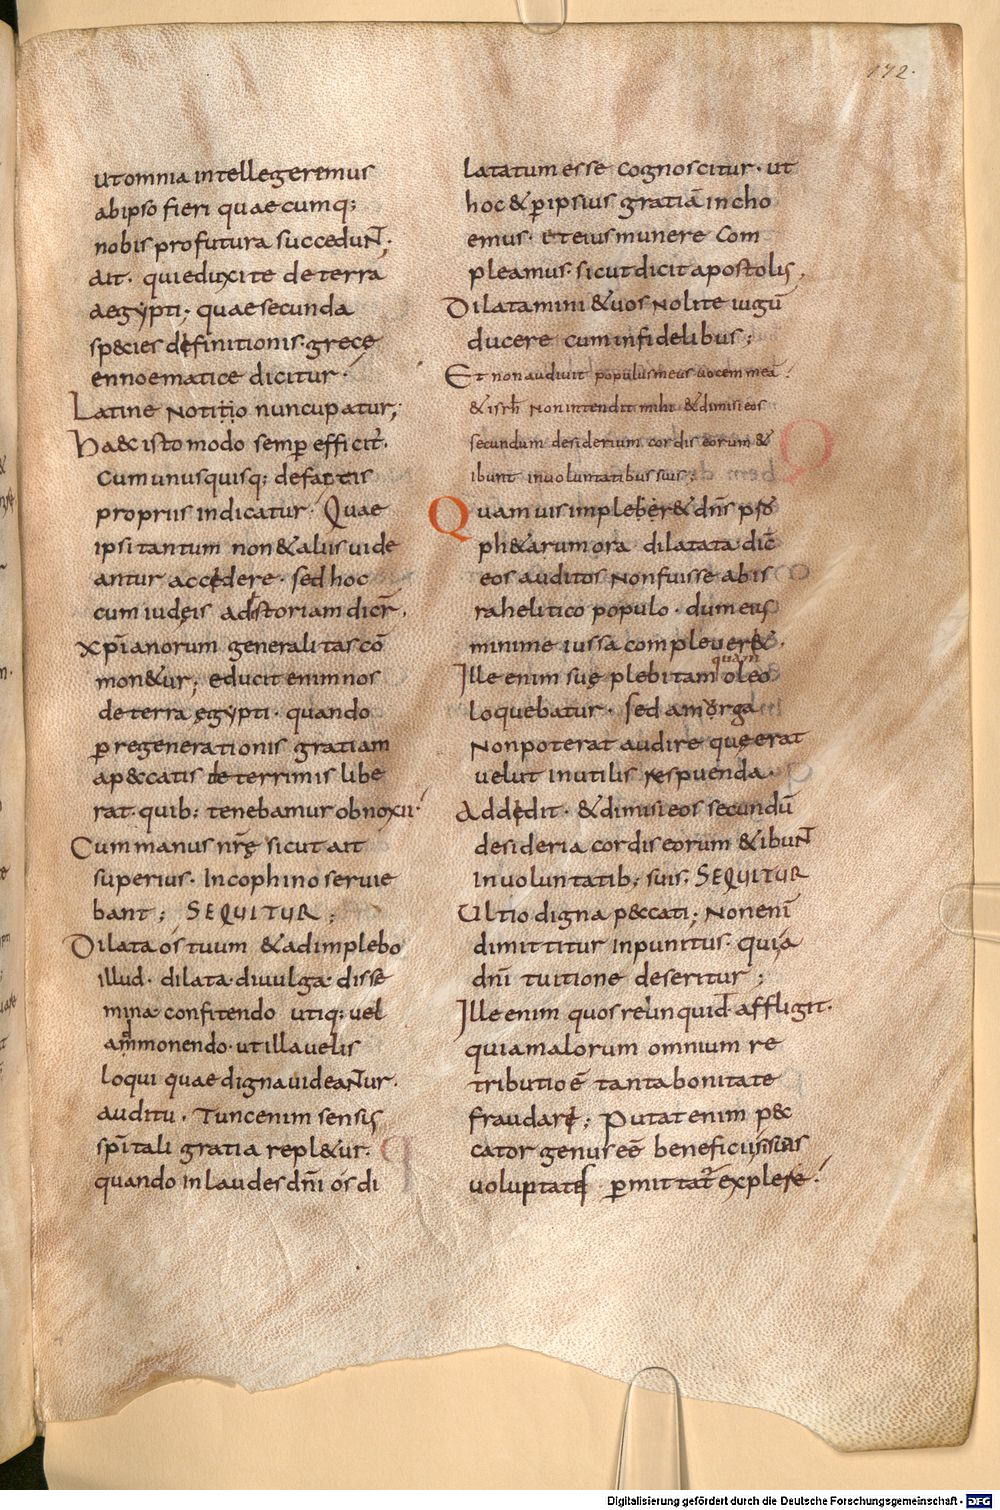 172.
ut omnia intellegeremus
ab ipso fieri quaecumq;
nobis profutura succedunt̅·
ait· qui eduxi te de terra
aegypti· quae secunda
sp&cies definitionis· grecę
ennoematice dicitur·
Latine notitio nuncupatur;
Ha&c isto modo semp̱ efficit̅·
cum unusquisq; de factis
propriis indicatur· Quae
ipsi tantum non & aliis uide
antur accedere· sed hoc
cum iudęis ad storiam dicr̅·
xp̅ianorum generalitas co̅
mon&ur; educit enim nos
de terra ęgypti· quando
p̱ regenerationis gratiam
a p&ccatis deterrimis libe
rat· quib; tenebamur obnoxii·
Cum manus nr̅ę sicut ait
superius· In cophino seruie
bant; SEQUITUR;
Dilata os tuum & adimplebo
illud· dilata· diuulga· disse
mina confitendo utiq; uel
ammonendo· ut illa uelis
loqui quae digna uideantur·
auditu· Tunc enim sensis
sp̅itali gratia repl&ur·
quando in laudes dn̅i os di
latatum esse cognoscitur· ut
hoc & p̱ ipsius gratia̅ incho
emus· et eius munere com
pleamus· sicut dicit apostolis,
Dilatamini & uos nolite iugu̅
ducere cum infidelibus;
Et non audiuit populus meus uocem mea̅·
& isrh̅ non intendit mihi & dimisi eos
secundum desiderium cordis eorum &
ibunt in uoluntatibus suis;
Quamuis impleber& dn̅s p̱fo
ph&arum ora dilatata dic̅
eos auditos non fuisse ab is
rahelitico populo· dum eius
minime iussa compleuer&·
quam
Ille enim suę plebi tam oleo
loquebatur· sed amorga
non poterat audire quę erat
uelut inutilis respuenda·
Addedit· & dimisi eos secundu̅
desideria cordis eorum & ibunt
in uoluntatib; suis; SEQUITUR
Ultio digna p&ccati; Non eni̅
dimittitur inpunitus· quia
dn̅i tuitione deseritur;
Ille enim quos relinquid· affligit·
quia malorum omnium re
tributio e̅ tanta bonitate
fraudare; Putat enim p&c
cator genus ee̅ beneficii si suas
uoluptates p̱mittat̅ explere·
Digitalisierung gefördert durch die Deutsche Forschungsgemeinschaft - DFG